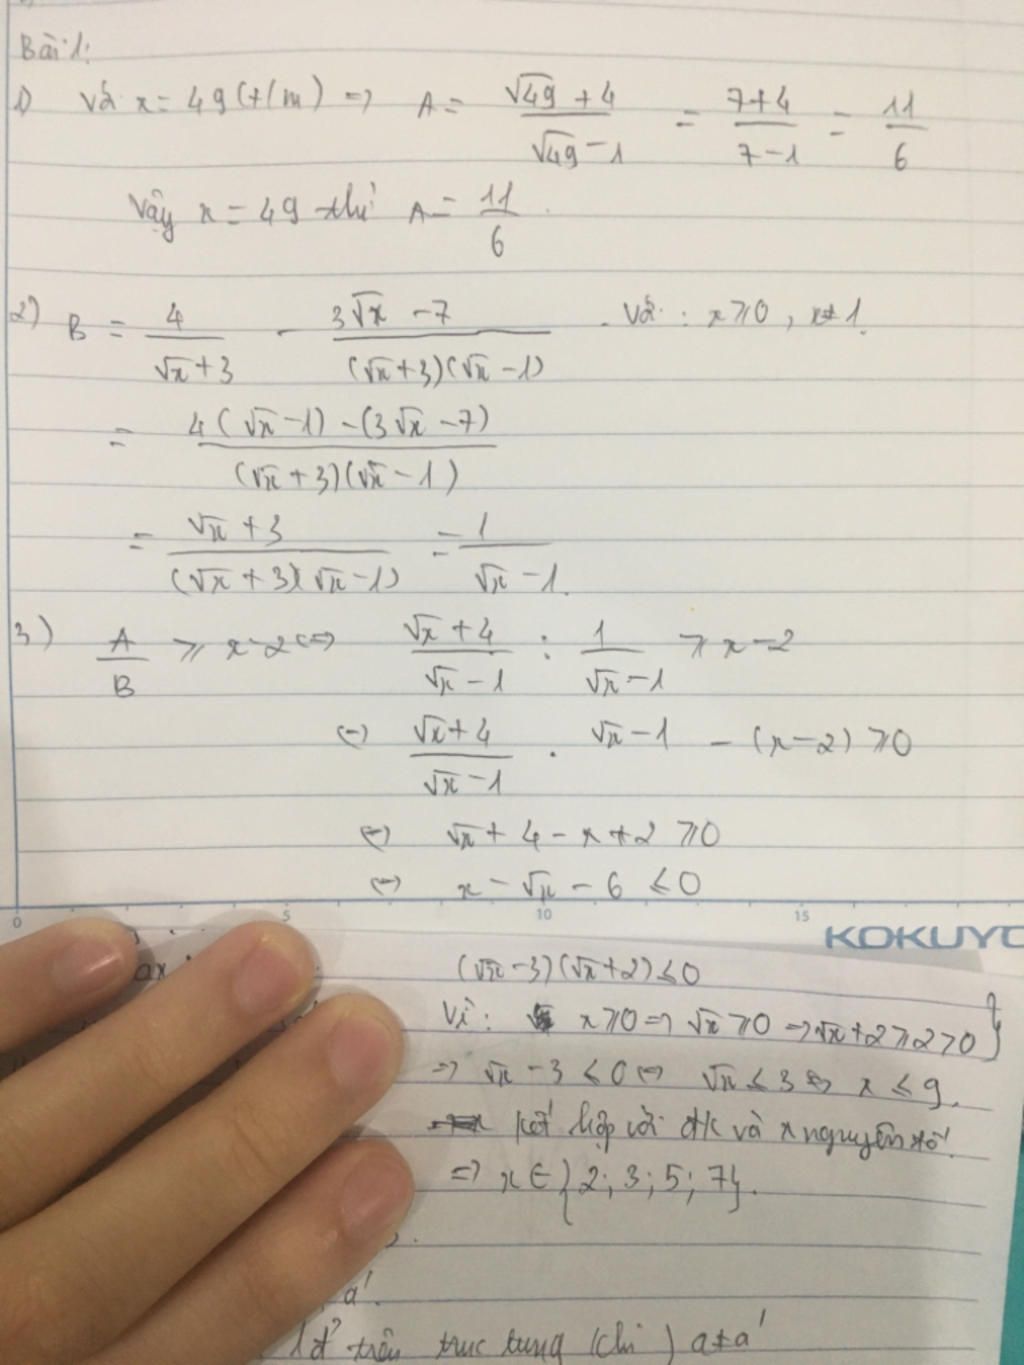 Bài 1:
1) Với x = 49 (t/m) => A = (√49 + 4)/(√49 - 1) = (7+4)/(7-1) = 11/6
Vậy x = 49 thì A = 11/6.
2) B = 4/(√x + 3) - (3√x - 7)/((√x+3)(√x-1)). Với: x ≥ 0, x ≠ 1.
= (4(√x - 1) - (3√x - 7))/((√x + 3)(√x - 1))
= (√x + 3)/((√x + 3)(√x - 1)) = 1/(√x - 1).
3) A/B ≥ x - 2 <=> (√x + 4)/(√x - 1) : 1/(√x - 1) ≥ x - 2
<=> (√x + 4)/(√x - 1) . √x - 1 - (x - 2) ≥ 0
<=> √x + 4 - x + 2 ≥ 0
<=> x - √x - 6 ≤ 0
0 5 10 15
KOKUYO
ax
(√x - 3)(√x + 2) ≤ 0
Vì: x ≥ 0 => √x ≥ 0 => √x + 2 ≥ 2 > 0 }
=> √x - 3 ≤ 0 <=> √x ≤ 3 <=> x ≤ 9.
kết hợp với đk và x nguyên tố.
=> x ∈ {2; 3; 5; 7}.
a'.
trên trục tung (khi) a ≠ a'